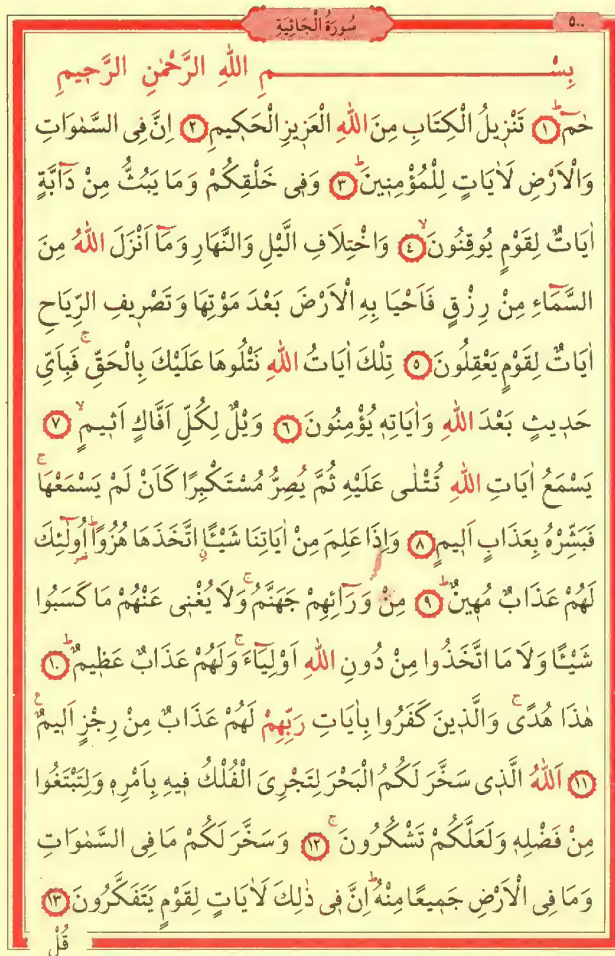 سُورَةُ الْجَاثِيَةِ
٥٠٠
بِسْمِ اللهِ الرَّحْمٰنِ الرَّحٖيمِ
حٰمٓ ﴿١﴾ تَنْزٖيلُ الْكِتَابِ مِنَ اللهِ الْعَزٖيزِ الْحَكٖيمِ ﴿٢﴾ اِنَّ فِى السَّمٰوَاتِ
وَالْاَرْضِ لَاٰيَاتٍ لِلْمُؤْمِنٖينَ ﴿٣﴾ وَفٖى خَلْقِكُمْ وَمَا يَبُثُّ مِنْ دَٓابَّةٍ
اٰيَاتٌ لِقَوْمٍ يُوقِنُونَ ﴿٤﴾ وَاخْتِلَافِ الَّيْلِ وَالنَّهَارِ وَمَٓا اَنْزَلَ اللهُ مِنَ
السَّمَٓاءِ مِنْ رِزْقٍ فَاَحْيَا بِهِ الْاَرْضَ بَعْدَ مَوْتِهَا وَتَصْرٖيفِ الرِّيَاحِ
اٰيَاتٌ لِقَوْمٍ يَعْقِلُونَ ﴿٥﴾ تِلْكَ اٰيَاتُ اللهِ نَتْلُوهَا عَلَيْكَ بِالْحَقِّۚ فَبِاَىِّ
حَدٖيثٍ بَعْدَ اللهِ وَاٰيَاتِهٖ يُؤْمِنُونَ ﴿٦﴾ وَيْلٌ لِكُلِّ اَفَّاكٍ اَثٖيمٍۙ ﴿٧﴾
يَسْمَعُ اٰيَاتِ اللهِ تُتْلٰى عَلَيْهِ ثُمَّ يُصِرُّ مُسْتَكْبِرًا كَاَنْ لَمْ يَسْمَعْهَاۚ
فَبَشِّرْهُ بِعَذَابٍ اَلٖيمٍ ﴿٨﴾ وَاِذَا عَلِمَ مِنْ اٰيَاتِنَا شَيْـًٔا اتَّخَذَهَا هُزُوًاۜ اُولٰٓئِكَ
لَهُمْ عَذَابٌ مُهٖينٌۜ ﴿٩﴾ مِنْ وَرَٓائِهِمْ جَهَنَّمُۚ وَلَا يُغْنٖى عَنْهُمْ مَا كَسَبُوا
شَيْـًٔا وَلَا مَا اتَّخَذُوا مِنْ دُونِ اللهِ اَوْلِيَٓاءَۚ وَلَهُمْ عَذَابٌ عَظٖيمٌۜ ﴿١٠﴾
هٰذَا هُدًىۚ وَالَّذٖينَ كَفَرُوا بِاٰيَاتِ رَبِّهِمْ لَهُمْ عَذَابٌ مِنْ رِجْزٍ اَلٖيمٌ
﴿١١﴾ اَللهُ الَّذٖى سَخَّرَ لَكُمُ الْبَحْرَ لِتَجْرِىَ الْفُلْكُ فٖيهِ بِاَمْرِهٖ وَلِتَبْتَغُوا
مِنْ فَضْلِهٖ وَلَعَلَّكُمْ تَشْكُرُونَۚ ﴿١٢﴾ وَسَخَّرَ لَكُمْ مَا فِى السَّمٰوَاتِ
وَمَا فِى الْاَرْضِ جَمٖيعًا مِنْهُۜ اِنَّ فٖى ذٰلِكَ لَاٰيَاتٍ لِقَوْمٍ يَتَفَكَّرُونَ ﴿١٣﴾
قُلْ